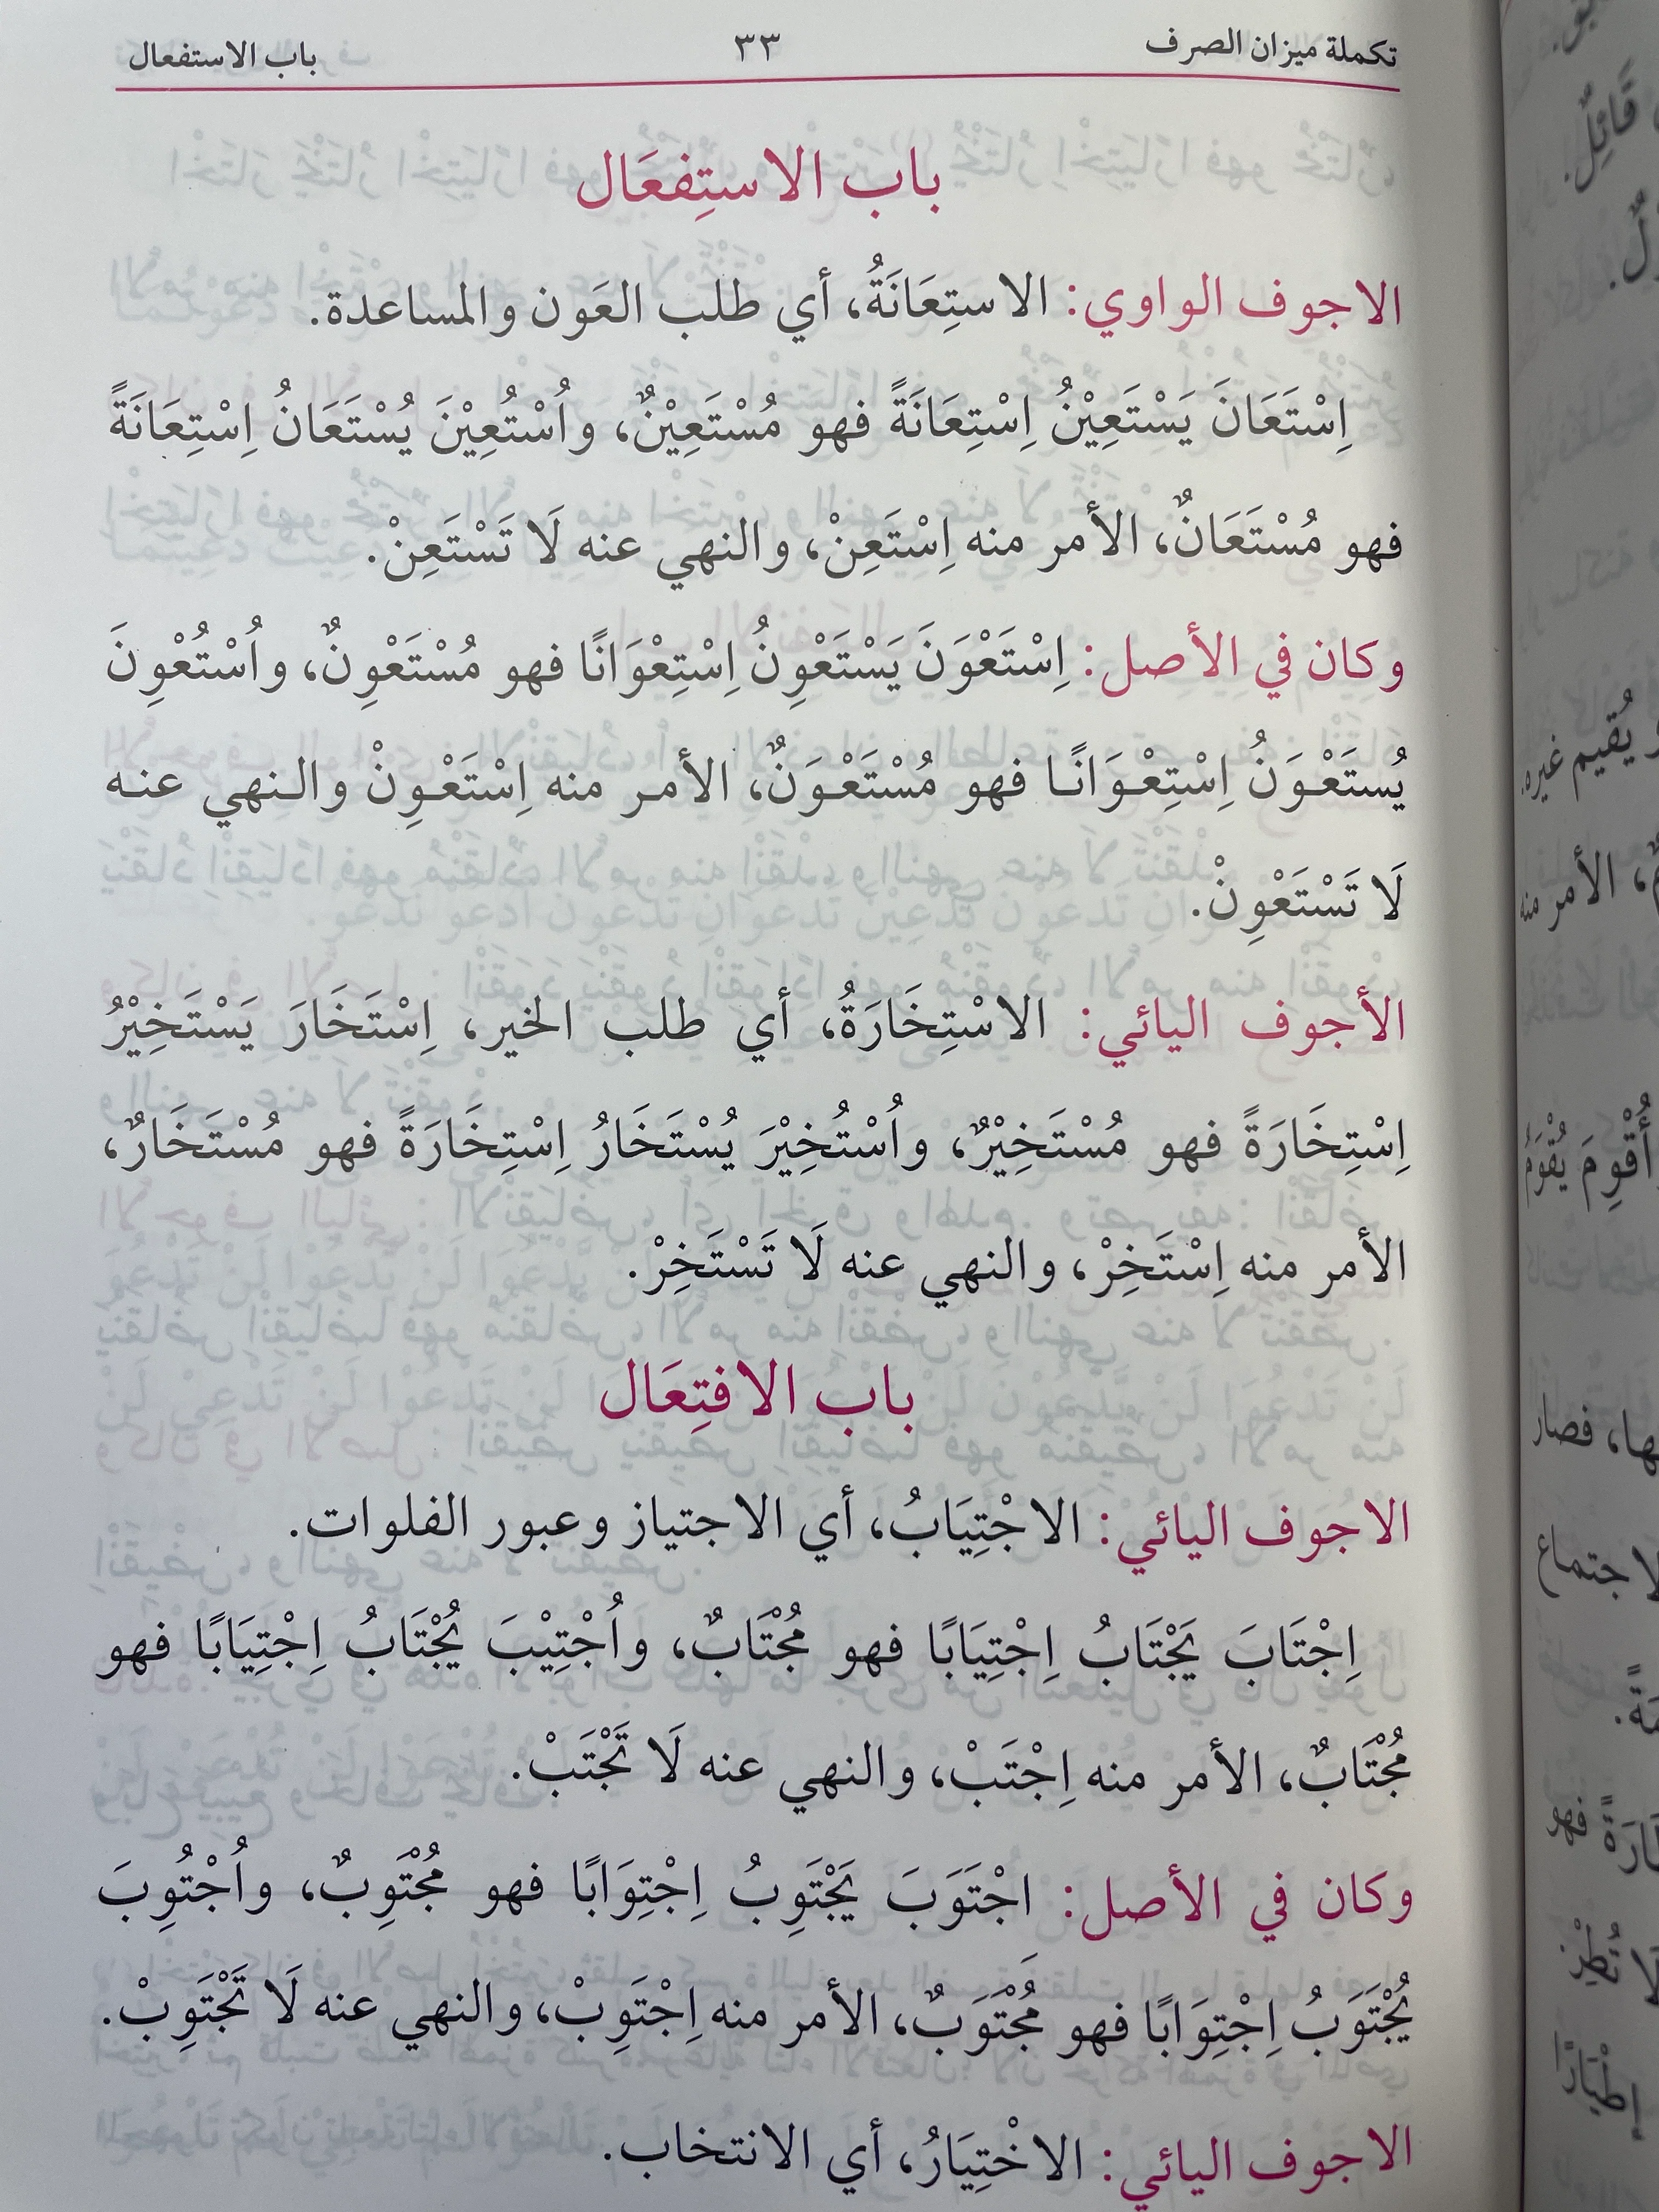 تكملة ميزان الصرف ٣٣ باب الاستفعال
باب الاستِفعَال
الاجوف الواوي: الاستِعَانَةُ، أي طلب العَون والمساعدة.
اِسْتَعَانَ يَسْتَعِيْنُ اِسْتِعَانَةً فهو مُسْتَعِيْنٌ، واُسْتُعِيْنَ يُسْتَعَانُ اِسْتِعَانَةً
فهو مُسْتَعَانٌ، الأمر منه اِسْتَعِنْ، والنهي عنه لَا تَسْتَعِنْ.
وكان في الأصل: اِسْتَعْوَنَ يَسْتَعْوِنُ اِسْتِعْوَانًا فهو مُسْتَعْوِنٌ، واُسْتُعْوِنَ
يُستَعْوَنُ اِسْتِعْوَانًا فهو مُسْتَعْوَنٌ، الأمر منه اِسْتَعْوِنْ والنهي عنه
لَا تَسْتَعْوِنْ.
الأجوف اليائي: الاسْتِخَارَةُ، أي طلب الخير، اِسْتَخَارَ يَسْتَخِيْرُ
اِسْتِخَارَةً فهو مُسْتَخِيْرٌ، واُسْتُخِيْرَ يُسْتَخَارُ اِسْتِخَارَةً فهو مُسْتَخَارٌ،
الأمر منه اِسْتَخِرْ، والنهي عنه لَا تَسْتَخِرْ.
باب الافتِعَال
الاجوف اليائي: الاجْتِيَابُ، أي الاجتياز وعبور الفلوات.
اِجْتَابَ يَجْتَابُ اِجْتِيَابًا فهو مُجْتَابٌ، واُجْتِيْبَ يُجْتَابُ اِجْتِيَابًا فهو
مُجْتَابٌ، الأمر منه اِجْتَبْ، والنهي عنه لَا تَجْتَبْ.
وكان في الأصل: اجْتَوَبَ يَجْتَوِبُ اِجْتِوَابًا فهو مُجْتَوِبٌ، واُجْتُوِبَ
يُجْتَوَبُ اِجْتِوَابًا فهو مُجْتَوَبٌ، الأمر منه اِجْتَوِبْ، والنهي عنه لَا تَجْتَوِبْ.
الاجوف اليائي: الاخْتِيَارُ، أي الانتخاب.
قَائِلٌ.
يُقيم غيره.
الأمر منه
أُقْوِمَ يُقْوَمُ
فصار
فهو